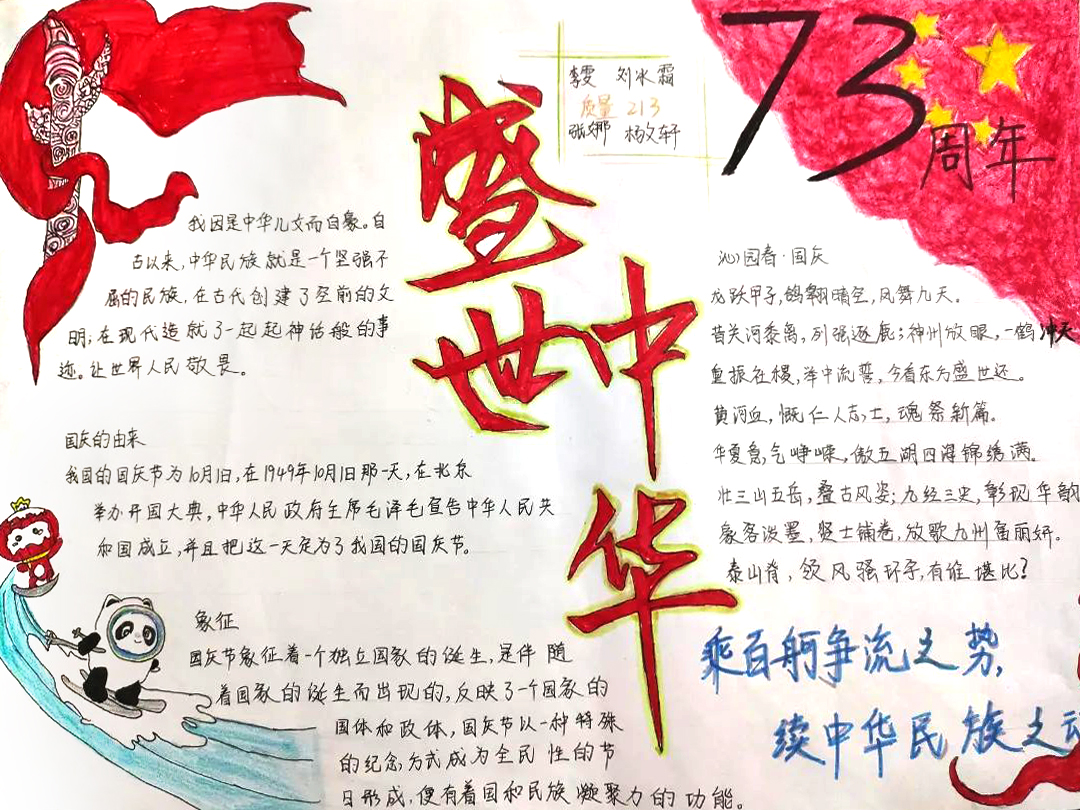 李雯 刘冰霜
质量 213
张娜 杨文轩
73周年
盛世中华
我因是中华儿女而自豪。自
古以来,中华民族就是一个坚强不
屈的民族,在古代创建了空前的文
明;在现代造就了一起起神话般的事
迹。让世界人民敬畏。
国庆的由来
我国的国庆节为10月1日,在1949年10月1日那一天,在北京
举办开国大典,中华人民政府主席毛泽毛宣告中华人民共
和国成立,并且把这一天定为了我国的国庆节。
象征
国庆节象征着一个独立国家的诞生,是伴随
着国家的诞生而出现的,反映了一个国家的
国体和政体,国庆节以一种特殊
的纪念方式成为全民性的节
日形成,便有着国和民族凝聚力的功能。
沁园春·国庆
龙跃甲子,鸽翱晴空,凤舞九天。
昔关河黍离,列强逐鹿;神州放眼,一鹤冲天
重振社稷,举中流誓,今看东方盛世还。
黄河血,慨仁人志士,魂祭新篇。
华夏意气峥嵘,傲五湖四海锦绣满。
壮三山五岳,叠古风姿;九经三史,彰现华韵
豪客泼墨,贤士铺卷,放歌九州留丽妍。
泰山脊,领风骚环宇,有谁堪比?
乘百舸争流之势,
续中华民族之